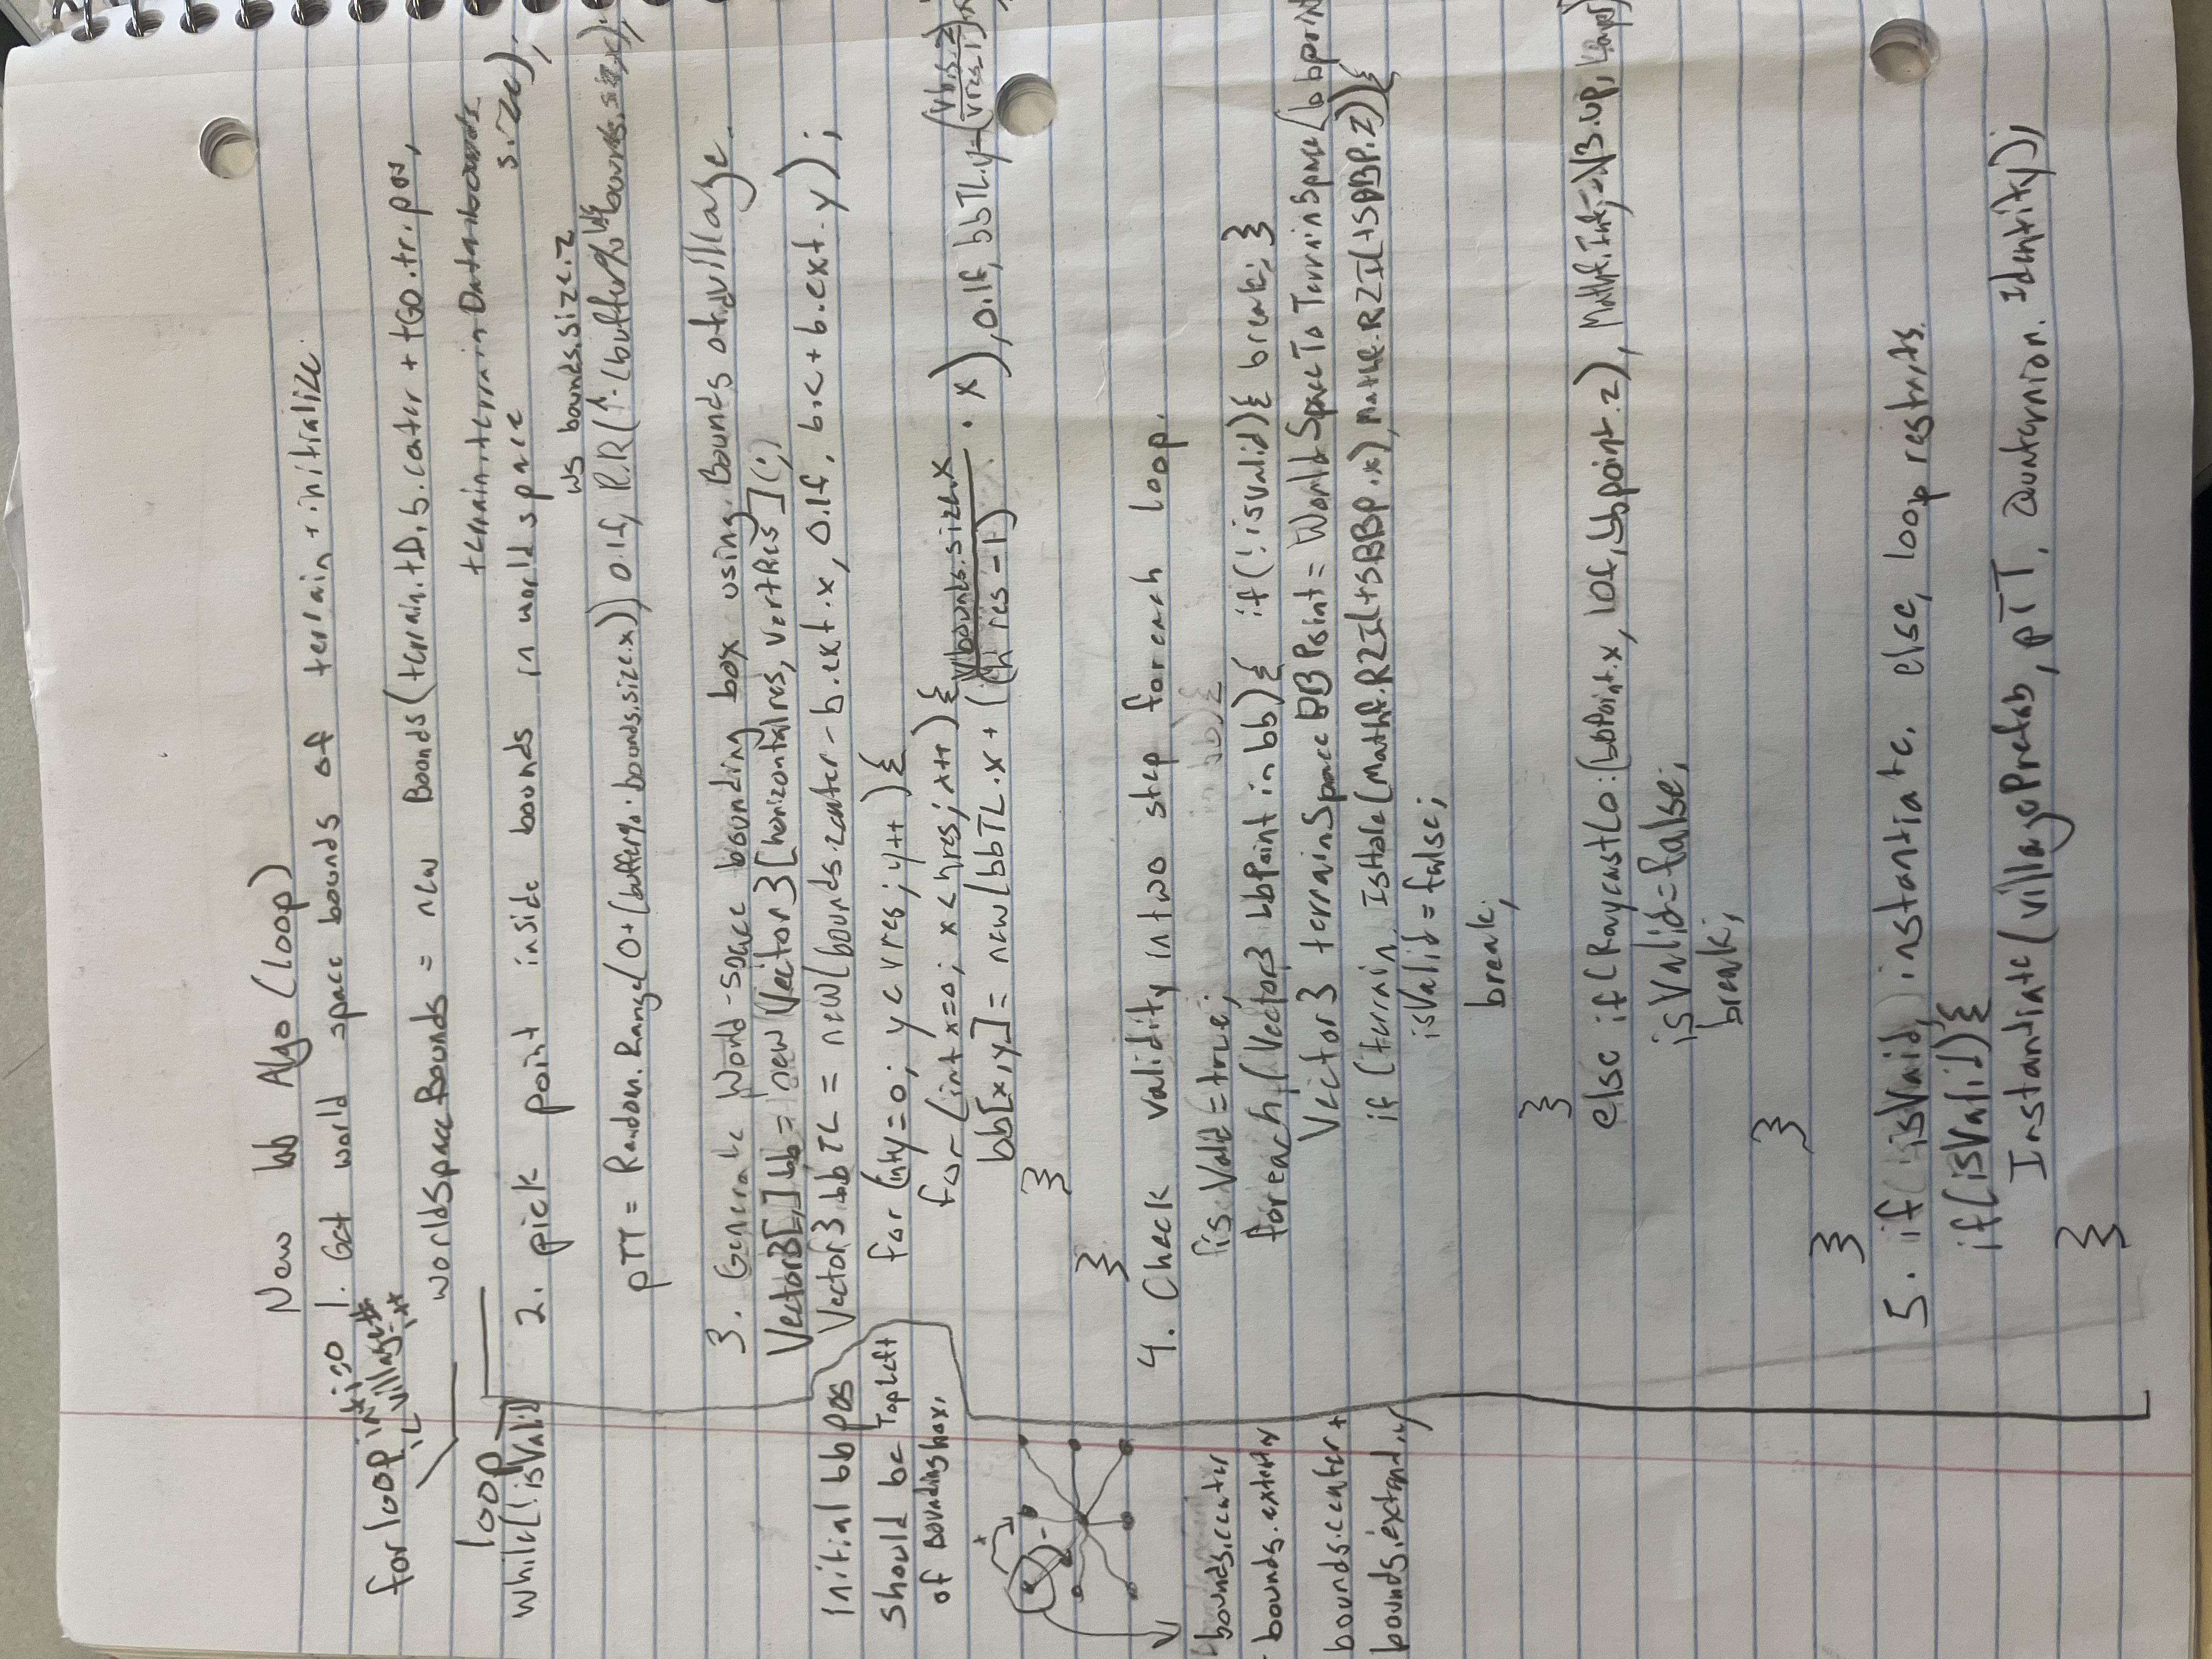 New bb Algo (loop)
1. Get world space bounds of terrain + initialize.
for loop int i=0
i < villages
i++
worldSpaceBounds = new Bounds(terrain.tD.b.center + tGO.tr.pos,
terrain.terrainData.bounds.size);
loop
while(!isValid)
2. pick point inside bounds in world space
ws bounds.size.z
pTT = Random.Range(0+(buffer%·bounds.size.x)) 0.1f, R.R(1-(buffer%
3. Generate World-space bounding box using Bounds of village.
Vector3[,] bb = new Vector3[horizontalres, vertRes]();
Vector3 bbTL = new(bounds.center - b.ext.x, 0.1f, b.c + b.ext.y);
initial bb pos
should be TopLeft
of Bounding box.
for (int y=0; y < vres; y++) {
for (int x=0; x < hres; x++) {
bb[x,y] = new(bbTL.x + (Vbounds.size.x / (h res - 1) · x), 0.1f, bbTL.y-(
}
}
4. Check validity in two step foreach loop.
isValid = true;
foreach(Vector3 bbPoint in bb){ if(!isValid){ break; }
Vector3 terrainSpaceBBPoint = WorldSpaceToTerrainSpace(bbpoin
if (terrain.IsHole(Mathf.R2I(tSBBP.x), Mathf.R2I(tSBBP.z))){
isValid = false;
break;
}
else if(Raycast(o:(bbPoint.x, 10f, bbpoint.z),
isValid = false;
break;
}
}
bounds.center
- bounds.extent.x
bounds.center +
bounds.extend.y
5. if (isValid) instantiate. else, loop restarts.
if(isValid){
Instantiate(villagePrefab, pTT, Quaternion.Identity);
}